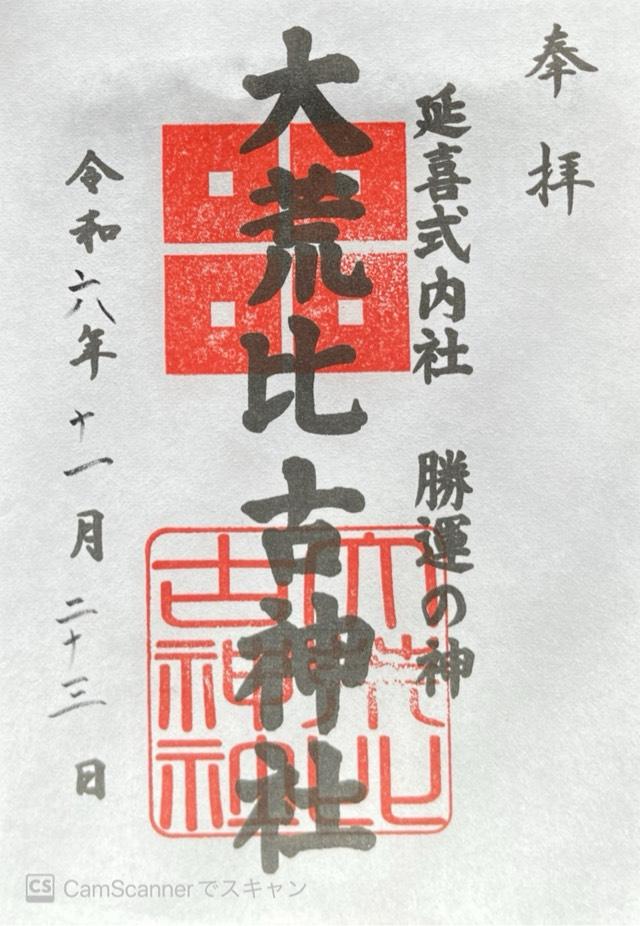 奉拝
延喜式内社 勝運の神
大荒比古神社
大荒比古神社
令和六八年 十一月 二十三 日
CS CamScannerでスキャン